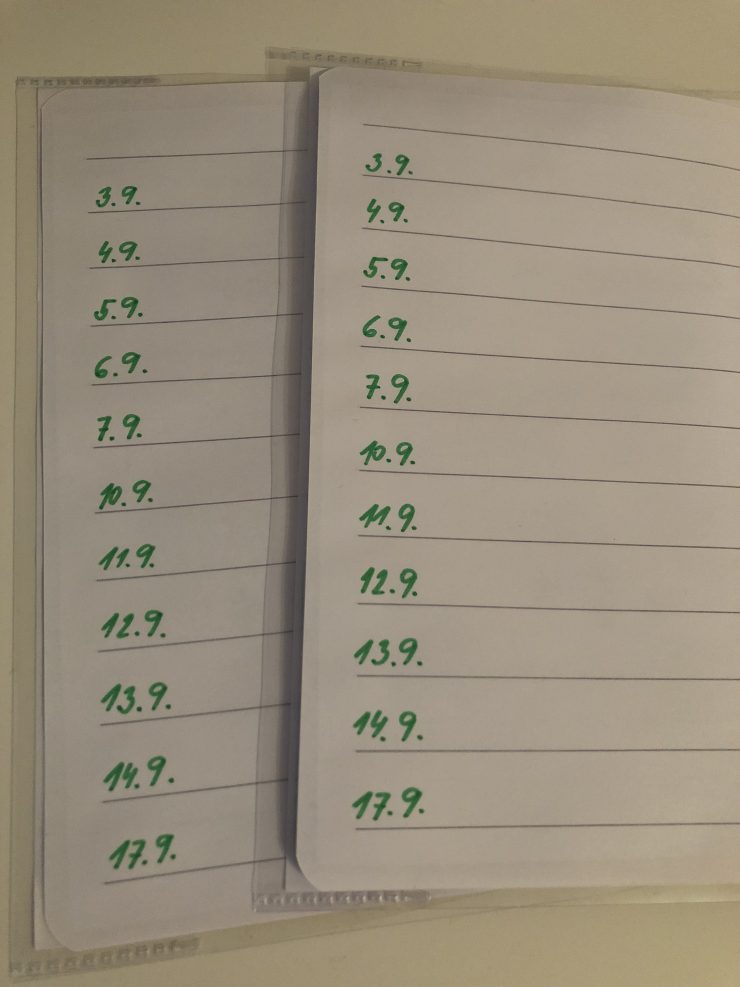 3.9.
4.9.
5.9.
6.9.
7.9.
10.9.
11.9.
12.9.
13.9.
14.9.
17.9.
3.9.
4.9.
5.9.
6.9.
7.9.
10.9.
11.9.
12.9.
13.9.
14.9.
17.9.